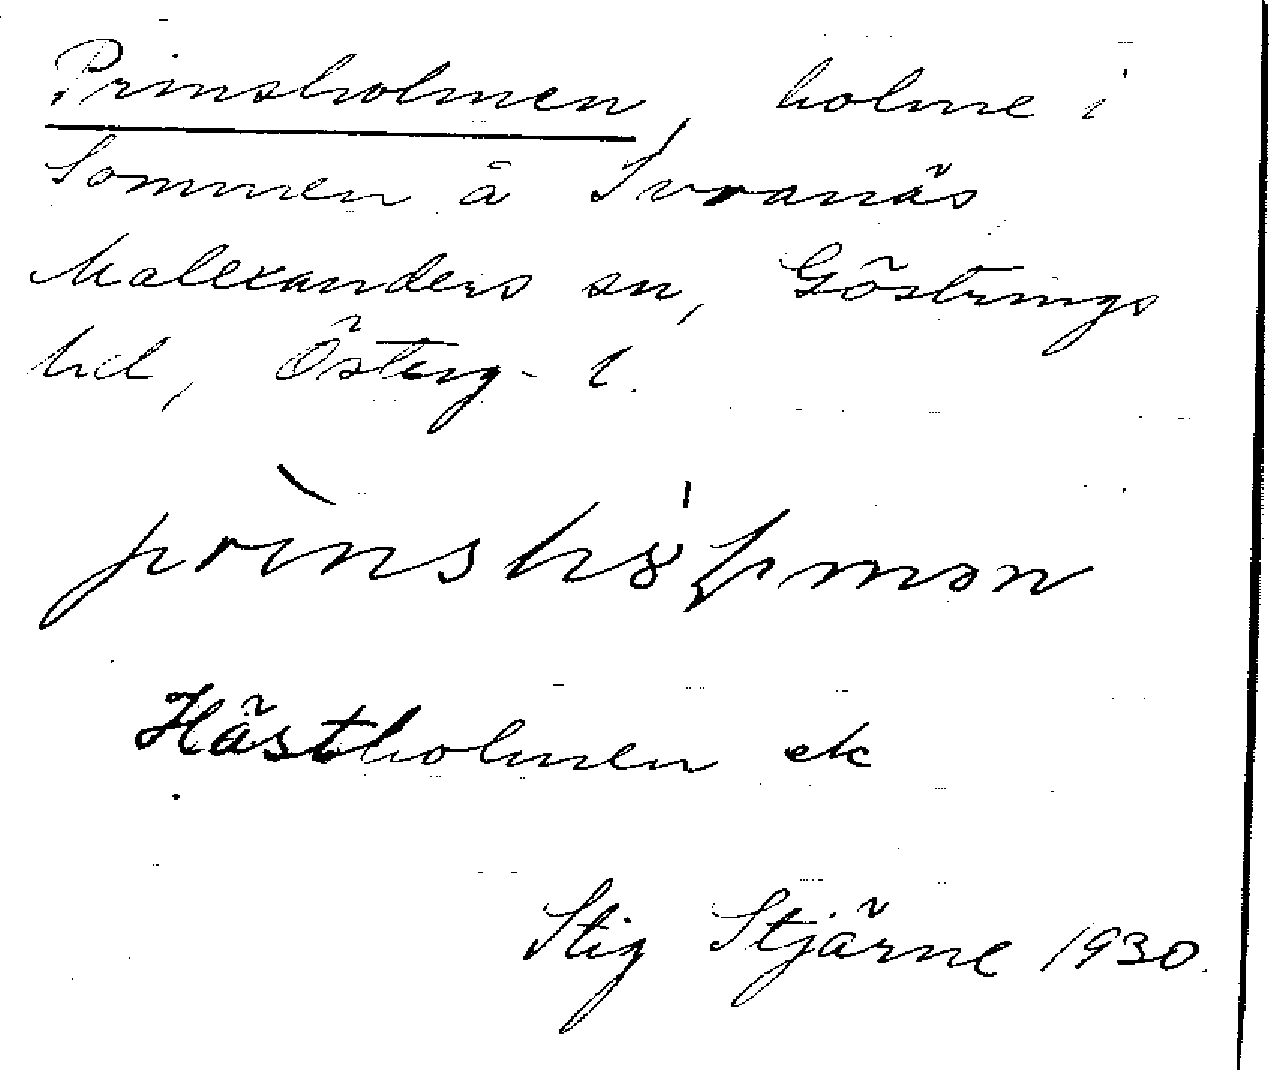 Prinsholmen, holme i
Sommen å Svanäs
Malexanders sn, Göstrings
hd, Österg. l.
Hästholmen ek
Stig Stjärne 1930.